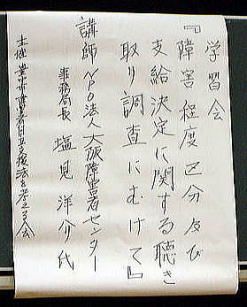 学習会
『障害程度区分及び
支給決定に関する聴き
取り調査にむけて』
講師 NPO法人大阪障害者センター
事務局長 塩見洋介氏
主催 障害者自立支援法を考える会